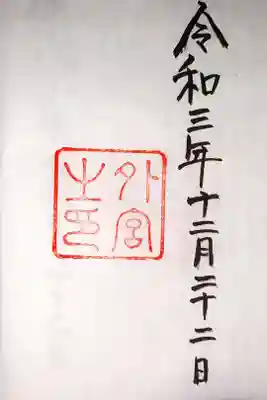 令和三年十二月二十二日
外宮
之印